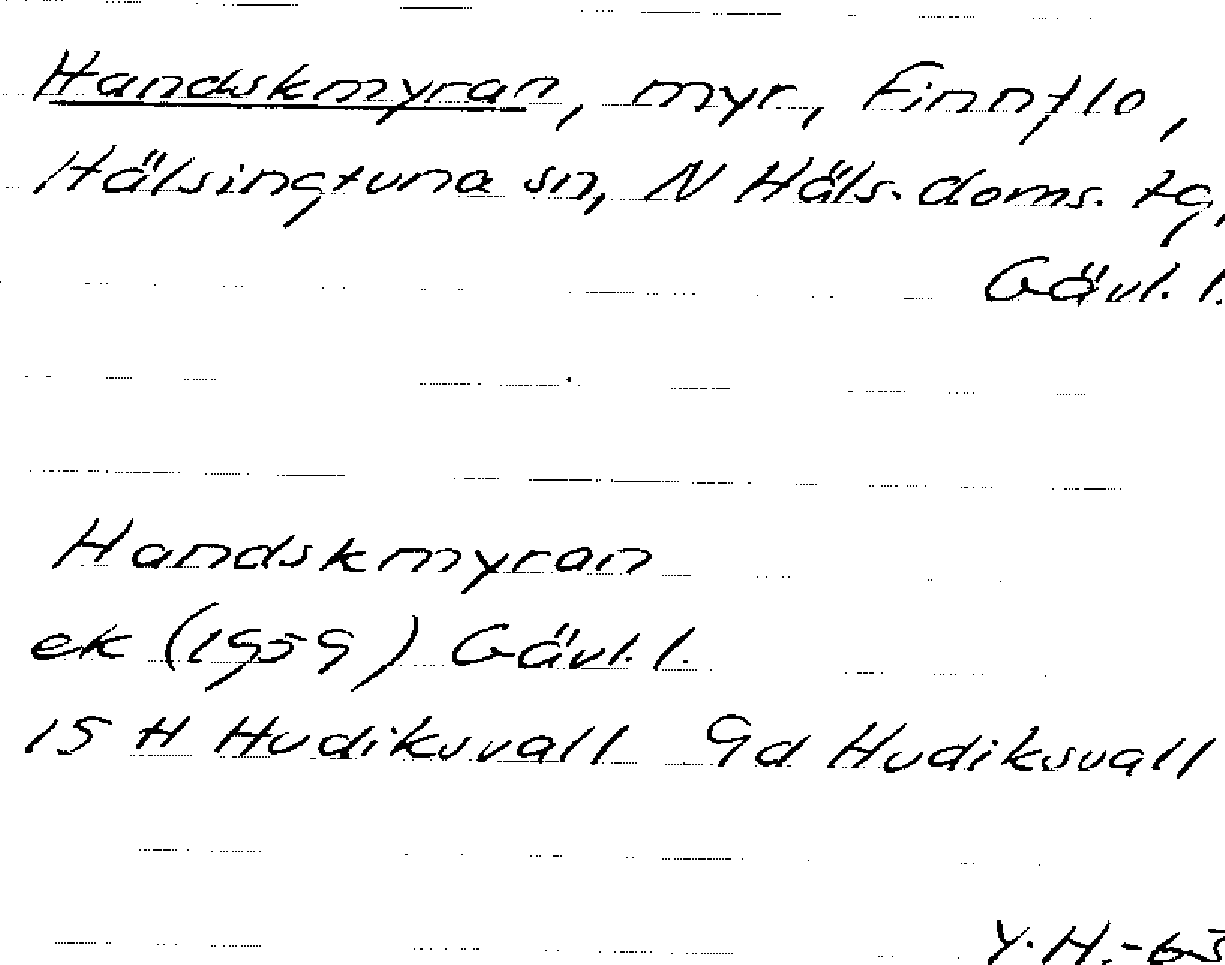 Handskmyran, myr, Finnflo,
Hälsingtuna sn, N Häls. doms. tg,
Gävl. l.
Handskmyran
ek (1959) Gävl. l.
15 H Hudiksvall 9d Hudiksvall
Y.H.-63